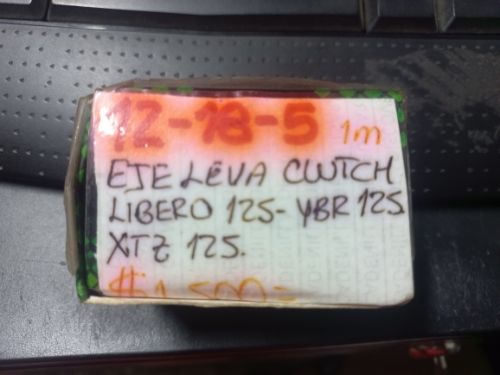 12-18-5 1m
EJE LEVA CLUTCH
LIBERO 125- YBR 125
XTZ 125.